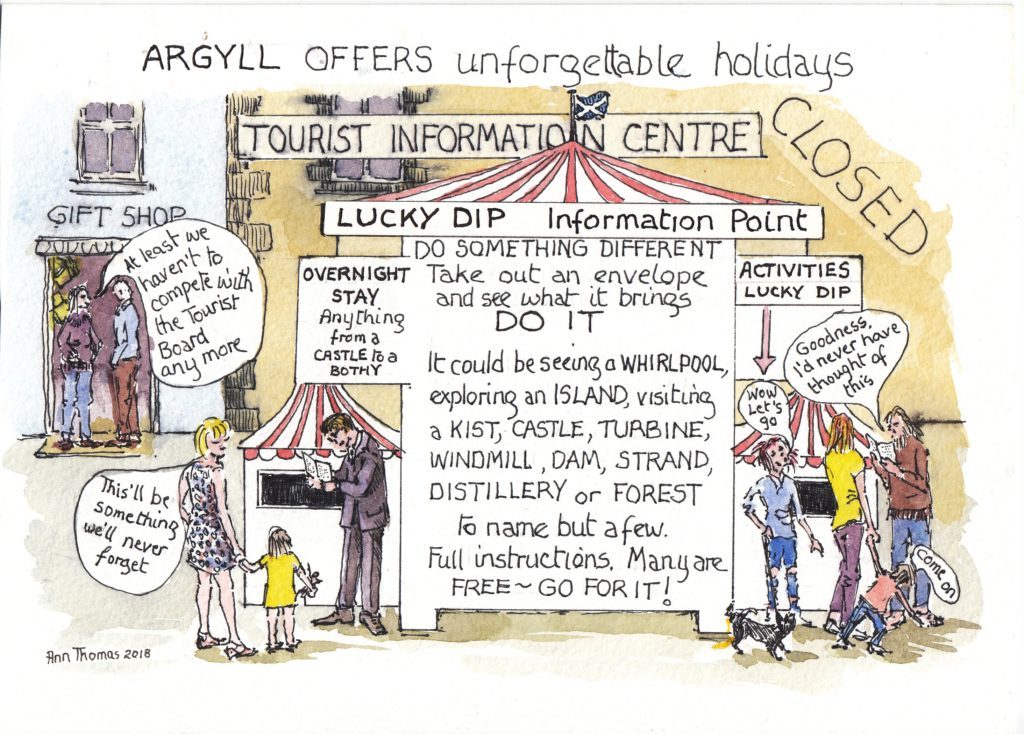 ARGYLL OFFERS unforgettable holidays
TOURIST INFORMATION CENTRE
CLOSED
GIFT SHOP
LUCKY DIP Information Point
At least we
haven't to
compete with
the Tourist
Board
any more
OVERNIGHT
STAY
Anything
from a
CASTLE to a
BOTHY
DO SOMETHING DIFFERENT
Take out an envelope
and see what it brings
DO IT
It could be seeing a WHIRLPOOL,
exploring an ISLAND, visiting
a KIST, CASTLE, TURBINE,
WINDMILL, DAM, STRAND,
DISTILLERY or FOREST
to name but a few.
Full instructions. Many are
FREE ~ GO FOR IT!
ACTIVITIES
LUCKY DIP
Goodness,
I'd never have
thought of
this
Wow
Let's
go
This'll be
something
we'll never
forget
Come on
Ann Thomas 2018